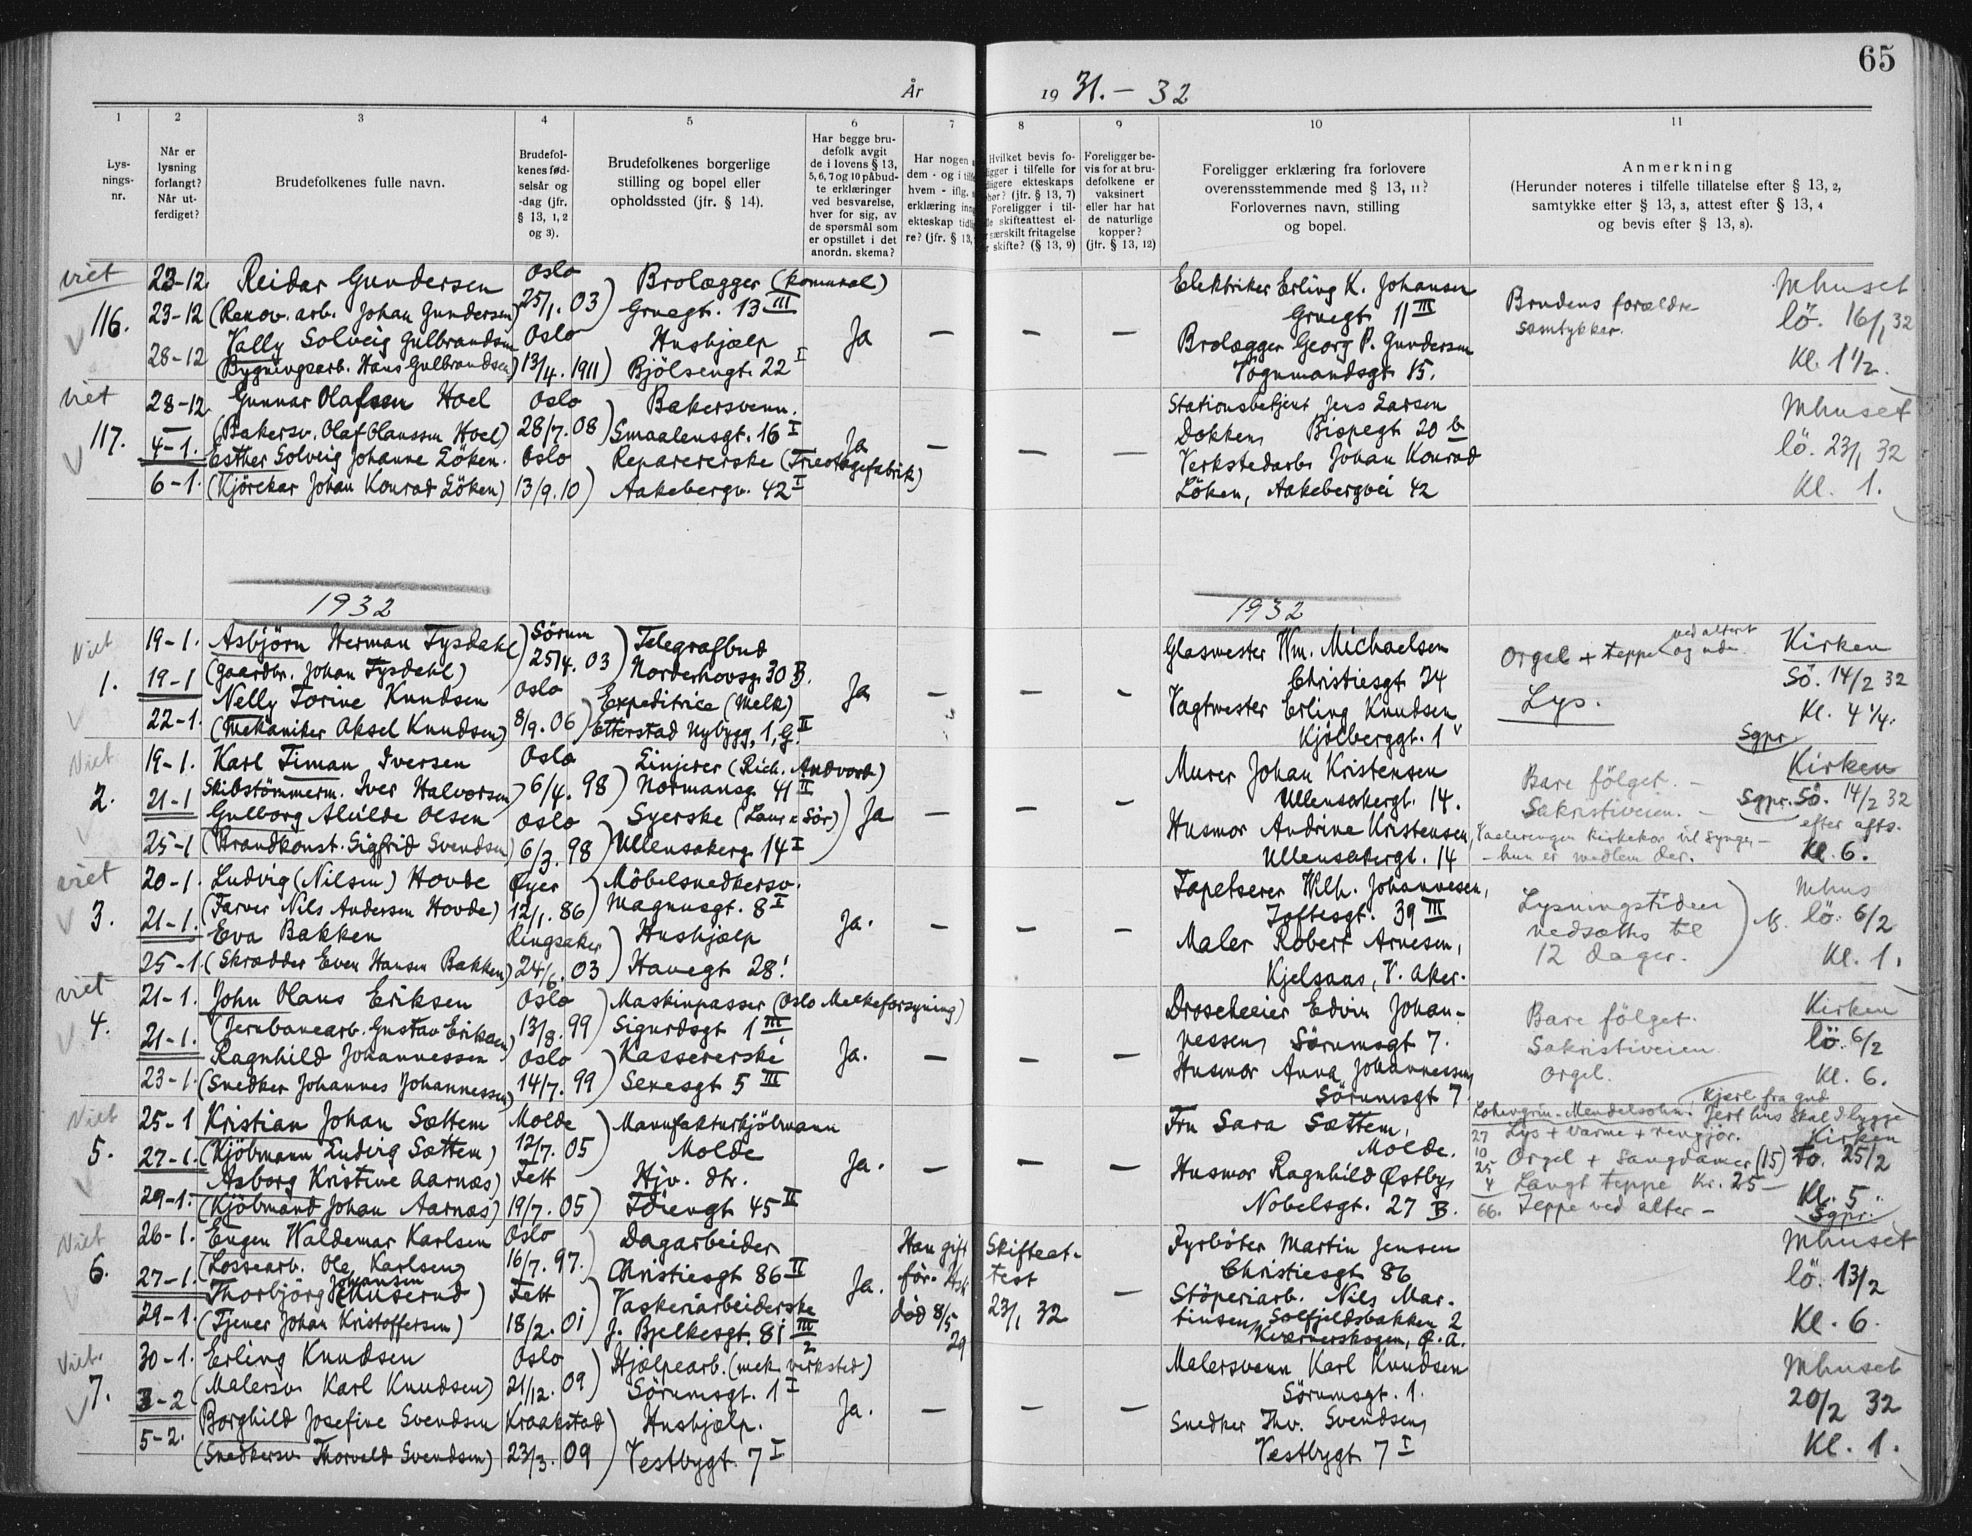 65
År 1931.-32
1 2 3 4 5 6 7 8 9 10 11
Lysningsnr.
Når er lysning forlangt? Når utferdiget?
Brudefolkenes fulle navn.
Brudefolkenes fødselsår og -dag (jfr. § 13, 1, 2 og 3).
Brudefolkenes borgerlige stilling og bopel eller opholdssted (jfr. § 14).
Har begge brudefolk avgit de i lovens § 13, 5, 6, 7 og 10 påbudte erklæringer ved besvarelse, hver for sig, av de spørsmål som er opstillet i det anordn. skema?
Foreligger bevis for at brudefolkene er vaksinert eller har hat de naturlige kopper? (jfr. § 13, 12)
Foreligger erklæring fra forlovere overensstemmende med § 13, 11? Forlovernes navn, stilling og bopel.
Anmerkning
(Herunder noteres i tilfelle tillatelse efter § 13, 2, samtykke efter § 13, 3, attest efter § 13, 4 og bevis efter § 13, 8).
viet 23-12. Reidar Gundersen Oslo Brolægger (kommunal) Elektriker Erling K. Johansen Mhuset
116. 23-12 (Renov. arb. Johan Gundersen) 25/1. 03) Gruegt. 13 III Gruegt. 11 III Brudens forældre lö. 16/1 32
Vally Solveig Gulbrandsen Oslo Hushjælp Ja - - - Brolægger Georg P. Gundersen samtykker.
28-12 (Bygningsarb. Hans Gulbrandsen) 13/4. 1911) Bjölsengt. 22 I Vognmandsgt. 15. Kl. 1 1/2.
viet 28-12. Gunnar Olafsen Hoel Oslo Bakersvenn. Stationsbetjent Jens Larsen Mhuset
117. (Bakersv. Olaf Olaussen Hoel) 28/7. 08) Smaalensgt. 16 I Dokken, Bispegt 20 b
4-1. Esther Solveig Johanne Löken. Oslo Reparererske (Tricotagefabrik) Ja - - - Verkstedarb. Johan Konrad lö. 23/1 32
6-1. (Kjörekar Johan Konrad Löken) 13/9. 10) Aakebergv. 42 I Löken, Aakebergvei 42 Kl. 1.
1932 1932
Viet 19-1. Asbjörn Herman Tysdahl Sörum Telegrafbud Glasmester Wm. Michaelsen Orgel + teppe ved alteret og ude Kirken
1. 19-1 (gaardbr. Johan Tysdahl) 25/4. 03 Norderhovsg. 30 B. Christiesgt 34 Sö. 14/2 32
Nelly Torine Knudsen Oslo Expeditrice (Melk) Ja - - - Vagtmester Erling Knudsen Lys.
22-1. (Mekaniker Aksel Knudsen) 8/9. 06) Etterstad Nybygg. 1, G. II Kjölberggt. 1 Kl. 4 1/4.
Sgpr.
Viet 19-1. Karl Timan Iversen Oslo Linjerer (Rich. Andvord) Murer Johan Kristensen Bare fölget. - Kirken
2. 21-1 Skibstömmerm. Iver Halvorsen) 6/4. 98) Normansg. 41 II Ullensakergt. 14. Sakristiveien. - Sgpr. Sö. 14/2 32
Gulborg Alvilde Olsen Oslo Syerske (Laur. Sör) Ja - - - Husmor Andrine Kristensen, Vaalerengen kirkekor vil synge - efter afts.
25-1 (Brandkonst. Sigfrid Svendsen) 6/3. 98) Ullensakerg. 14 I Ullensakergt. 14 - hun er medlem der. Kl. 6.
viet 20-1. Ludvig (Nilsen) Hovde Øyer Möbelsnedkersv. Tapetserer Wilh. Johannesen, Lysningstiden Mhus
3. (Farver Nils Andersen Hovde) 12/1. 86) Magnusgt. 8 I Toftesgt. 39 III nedsættes til lö. 6/2
21-1. Eva Bakken Ringsaker Hushjælp Ja. - - - Maler Robert Arnesen, 12 dager.
25-1. (Skrædder Even Hansen Bakken) 24/6. 03) Havegt 28. Kjelsaas, V. Aker. Kl. 1.
viet 21-1. John Olaus Eriksen Oslo Maskinpasser (Oslo Melkeforsyning) Droscheeier Edvin Johan- Bare fölget. Kirken
4. (Jernbanearb. Gustav Eriksen) 13/8. 99) Sigurdsgt 1 III nessen, Sörumsgt 7. Sakristiveien. lö. 6/2
21-1. Ragnhild Johannessen Oslo Kassererske Ja. - - - Husmor Anna Johannessen, Orgel. Kl. 6.
23-1. (Snedker Johannes Johannessen) 14/7. 99) Sexesgt 5 III Sörumsgt 7.
Kjærl. fra gud
Viet 25-1 Kristian Johan Sættem Molde Manufakturkjöbmann Fru Sara Sættem, Lohengrin - Mendelsohn.
5. 27-1. (Kjöbmann Ludvig Sættem) 12/7. 05) Molde Molde. 27 Lys + varme + rengjör. Kirken
Asborg Kristine Aarnæs Fett Hjv. dtr. Ja. - - - Husmor Ragnhild Østby, 10 Orgel + Sangdamer (15) To. 25/2
25 4 Langt teppe kr. 25 -
29-1. (Kjöbmand Johan Aarnæs) 19/7. 05) Töiengt 45 II Nobelsgt. 27 B. 66. Teppe ved alter - Kl. 5.
Sgpr.
Viet 26-1. Eugen Waldemar Karlsen Oslo Dagarbeider Han gift Skifteat- Fyrböter Martin Jensen Mhuset
6. (Lossearb. Ole Karlsen) 16/7. 97. Christiesgt 86 II för. test Christiesgt 86 lö. 13/2
27-1. Thorbjörg Johansen (Huserud) Fett Vaskeriarbeiderske Ja. död 8/5 29 23/1 32 - Stöperiarb. Nils Mar-
29-1. (Tjener Johan Kristoffersen) 18/2. 01) J. Bjelkesgt. 81 III tinsen, Solfjeldsbakken 2 Kværnerskogen, Ø. A. Kl. 6.
Viet. 30-1. Erling Knudsen Oslo Hjælpearb. (mek. verksted) Malersvenn Karl Knudsen Mhuset
7. (Malersv. Karl Knudsen) 21/12. 09) Sörumsgt. 1 I Sörumsgt. 1.
3-2 Borghild Josefine Svendsen Kraakstad Hushjælp. Ja. - - - Snedker Thv. Svendsen, 20/2 32
5-2. (Snedkersv. Thorvald Svendsen) 23/3. 09) Vestbygt. 7 I Vestbygt 7 I Kl. 1.